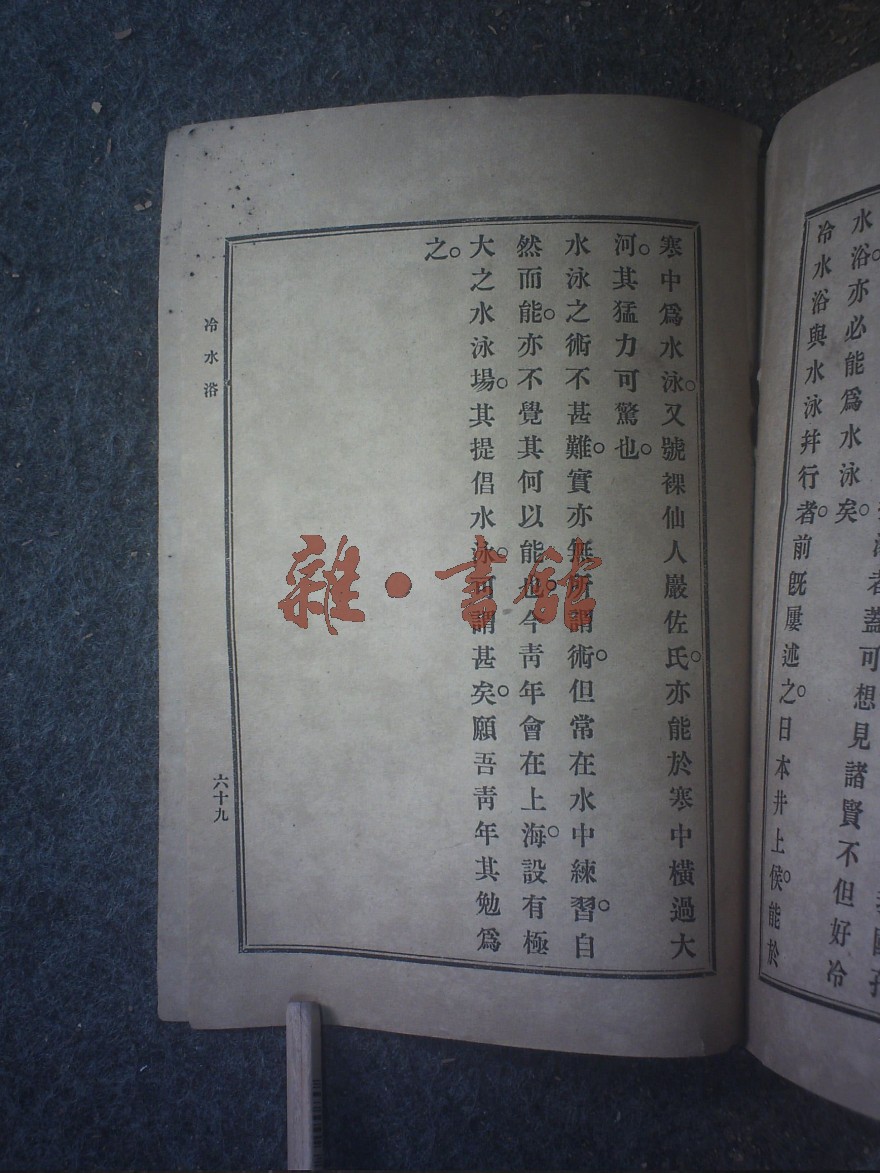 水浴。亦必能爲水泳矣。
冷水浴與水泳幷行者。前旣屢述之。日本井上侯。能於
寒中爲水泳。又號裸仙人巖佐氏。亦能於寒中橫過大
河。其猛力可驚也。
水泳之術不甚難。實亦無所謂術。但常在水中練習。自
然而能。亦不覺其何以能也。今靑年會在上海。設有極
大之水泳場。其提倡水泳。可謂甚矣。願吾靑年其勉爲
之。
冷水浴
六十九
雜·書館